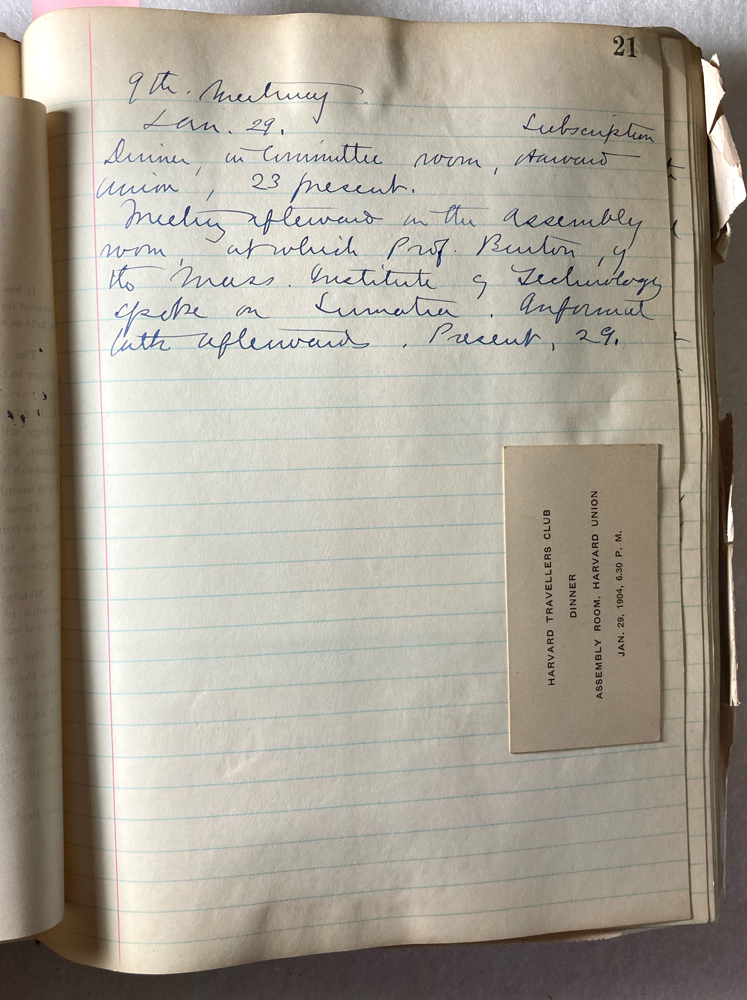 21
9th. Meeting
Jan. 29. Subscription
Dinner, in Committee room, Harvard
Union, 23 present.
Meeting afterward in the Assembly
room, at which Prof. Burton, of
the Mass. Institute of Technology
spoke on Sumatra. Informal
talk afterwards. Present, 29.
HARVARD TRAVELLERS CLUB
DINNER
ASSEMBLY ROOM, HARVARD UNION
JAN. 29, 1904, 6.30 P. M.